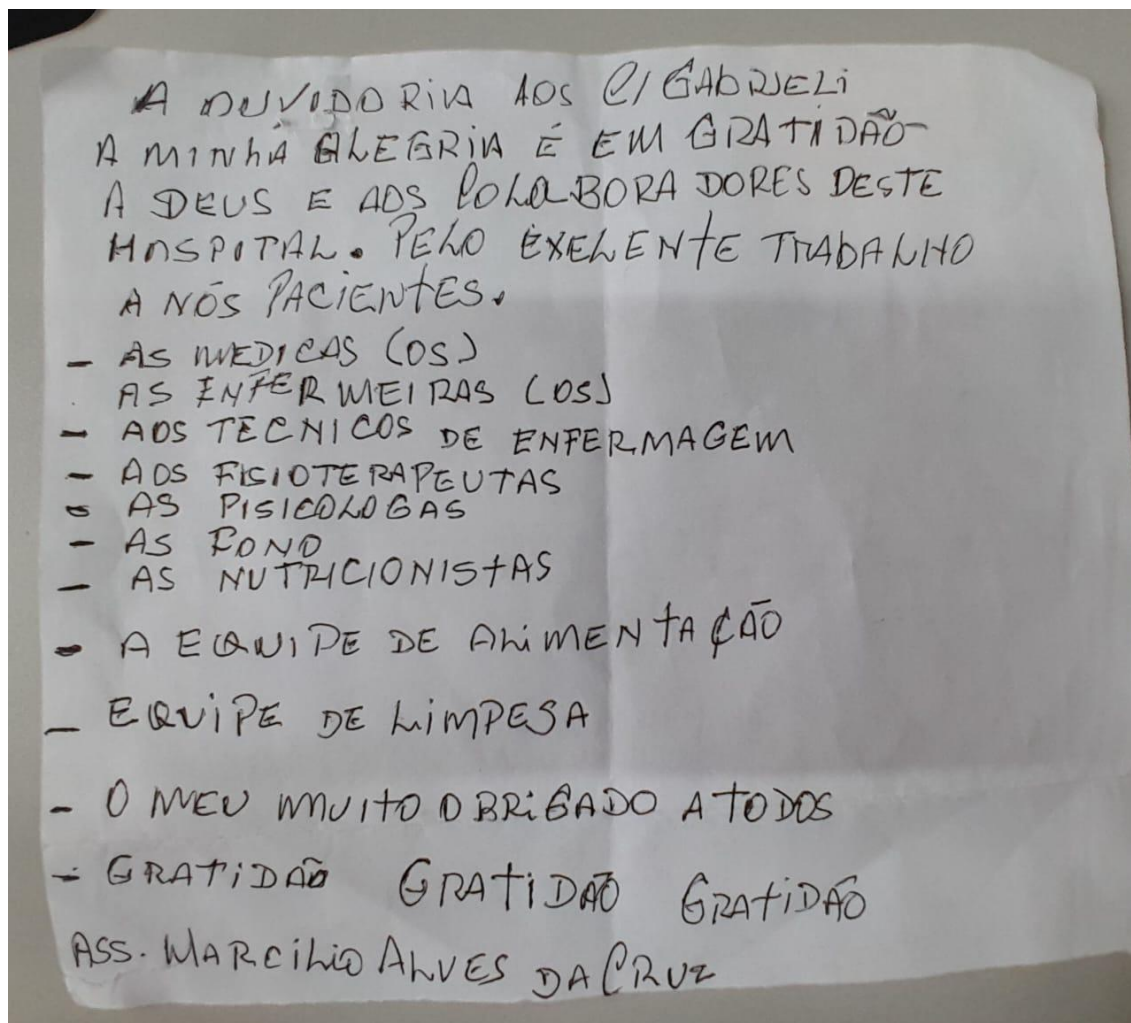 A OUVIDORIA AOS C/ GABRIELI
A MINHA ALEGRIA É EM GRATIDÃO
A DEUS E AOS COLABORADORES DESTE
HOSPITAL. PELO EXELENTE TRABALHO
A NÓS PACIENTES.
- AS MEDICAS (OS)
AS ENFERMEIRAS (OS)
- AOS TECNICOS DE ENFERMAGEM
- AOS FISIOTERAPEUTAS
- AS PISICOLOGAS
- AS FONO
- AS NUTRICIONISTAS
- A EQUIPE DE ALIMENTAÇÃO
- EQUIPE DE LIMPESA
- O MEU MUITO OBRIGADO A TODOS
- GRATIDÃO GRATIDÃO GRATIDÃO
ASS. MARCILIO ALVES DA CRUZ